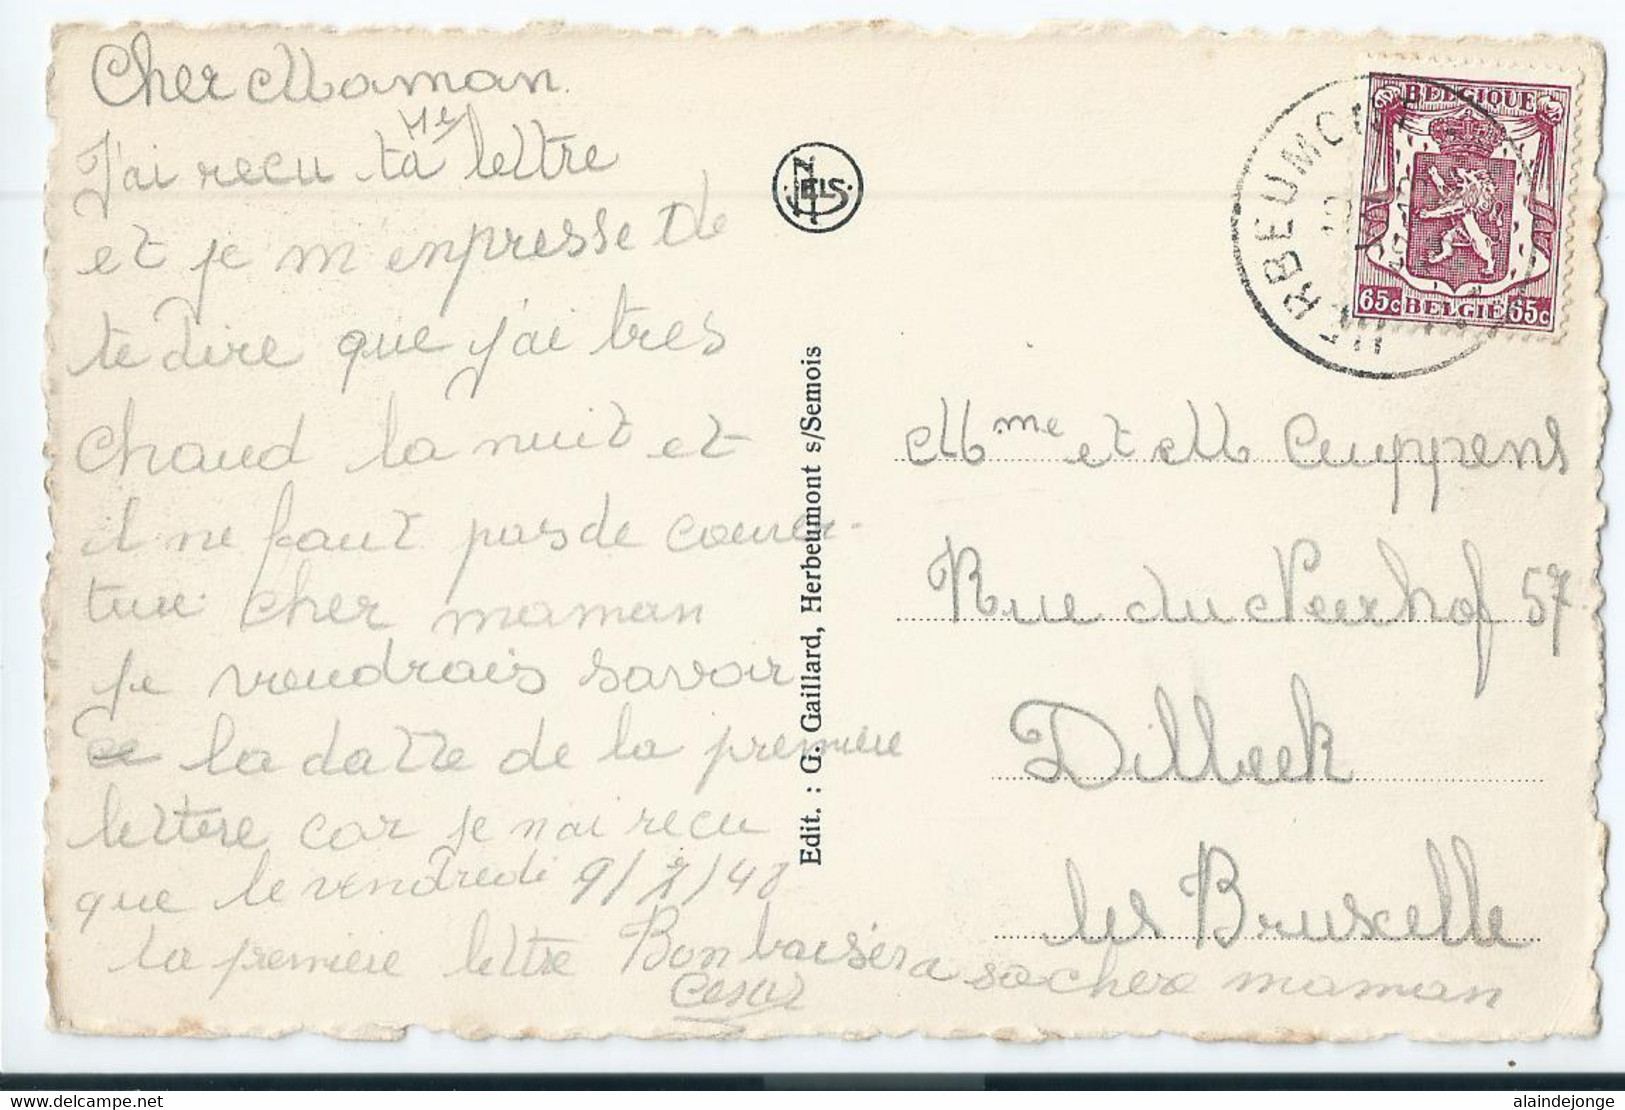 Cher Maman
J'ai recu ta lettre
et je m'enpresse de
te dire que j'ai tres
chaud la nuit et
il ne faut pas de couver-
ture cher maman
je voudrais savoir
la datte de la premiere
lettere car je n'ai recu
que le vendredi 9/7/48
ta premiere lettre Bon baiser a sa cher maman
Cesar
NELS
Edit. : G. Gaillard, Herbeumont s/Semois
HERBEUMONT
BELGIQUE
65c BELGIË 65c
Mme et M Cuyppens
Rue du Neerhof 57
Dilbeek
les Bruxelle
delcampe.net
alaindejonge